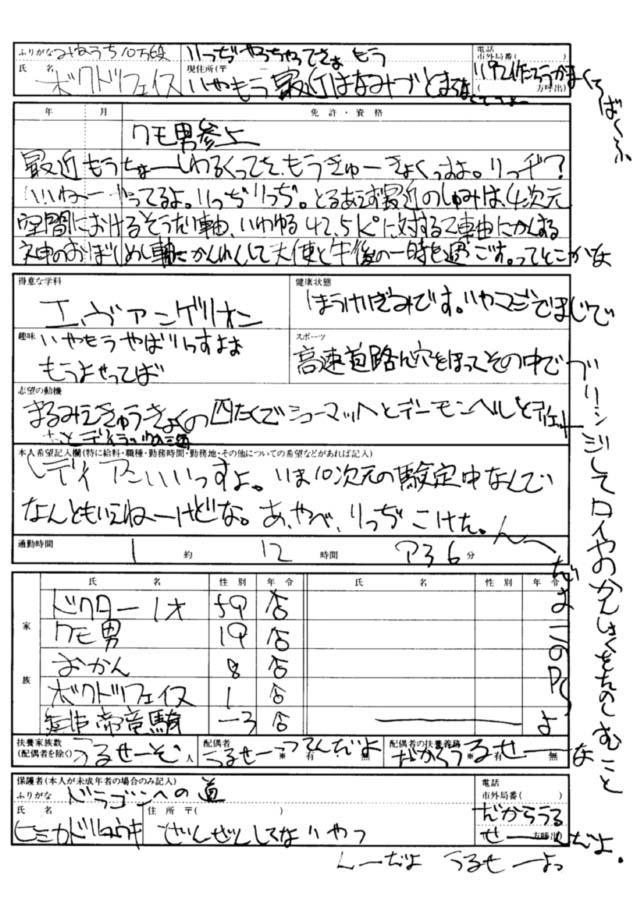 ふりがな みねうち10万段 りっぢやろうちゃってさぁ もう 電話 市外局番( )
氏 名 ボクドフェイス 現住所(〒 いやもう最近はなみづとまらなくてさー ( 方呼出)
年 月 免許・資格
クモ男参上
最近もうちょーしわるくってさ、もうきゅーきょくっすよ。りっチ?
いいねー やってるよ。りっぢりっぢ。とるあえず最近のしゅみは4次元
空間におけるそうたい軸、いわゆる42.5K°に対するZ軸にかんする
ネ申のおぼしめし軸にかんれんして天使と午後の一時を過ごす。ってとこかな
得意な学科 健康状態
エヴァンゲリオン ほうけいぎみです。いやマジでまじで
趣味 いやもうやばいっすよぉ スポーツ
もうよせってば 高速道路に穴をほってその中で
ブリッジしてロイヤのかんしょくをたのしむこと
志望の動機
まるみえきゅうきょくの四たくでショーマッハとデーモンヘルとディオ
本人希望記入欄(特に給料・職種・勤務時間・勤務地・その他についての希望などがあれば記入)
レディアンいいっすよ。いま10次元の験定中なんでい
なんともいえねーけどな。あ、やべ、りっぢこけた。
んーだよこのPCよ
通勤時間 1 約 12 時間 36 分
氏 名 性別 年令 氏 名 性別 年令
家族
ドクターイオ 59 否
クモ男 19 否
おかん 8 否
ボクドフェイス 1 否
帝竜騎 -3 否
扶養家族数 (配偶者を除く) うるせーぞ 人 配偶者 うるせーつってんだよ 有 無 配偶者の扶養義務 だからうるせーよな 有 無
保護者(本人が未成年者の場合のみ記入) 電話
ふりがな ドラゴンへの道 市外局番( )
氏 名 住 所(〒 ) だからうる
ヒミカドリュウキ ぜんぜんしてないやつ せーんだよ。 方呼出
んーだよ うるせーよっ